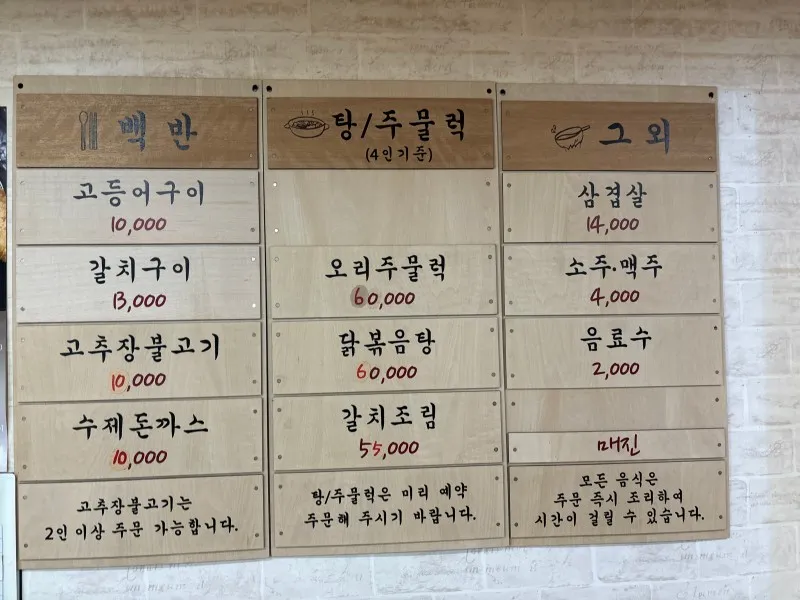 백반
고등어구이
10,000
갈치구이
13,000
고추장불고기
10,000
수제돈까스
10,000
고추장불고기는
2인 이상 주문 가능합니다.
탕/주물럭
(4인기준)
오리주물럭
60,000
닭볶음탕
60,000
갈치조림
55,000
탕/주물럭은 미리 예약
주문해 주시기 바랍니다.
그 외
삼겹살
14,000
소주·맥주
4,000
음료수
2,000
매진
모든 음식은
주문 즉시 조리하여
시간이 걸릴 수 있습니다.